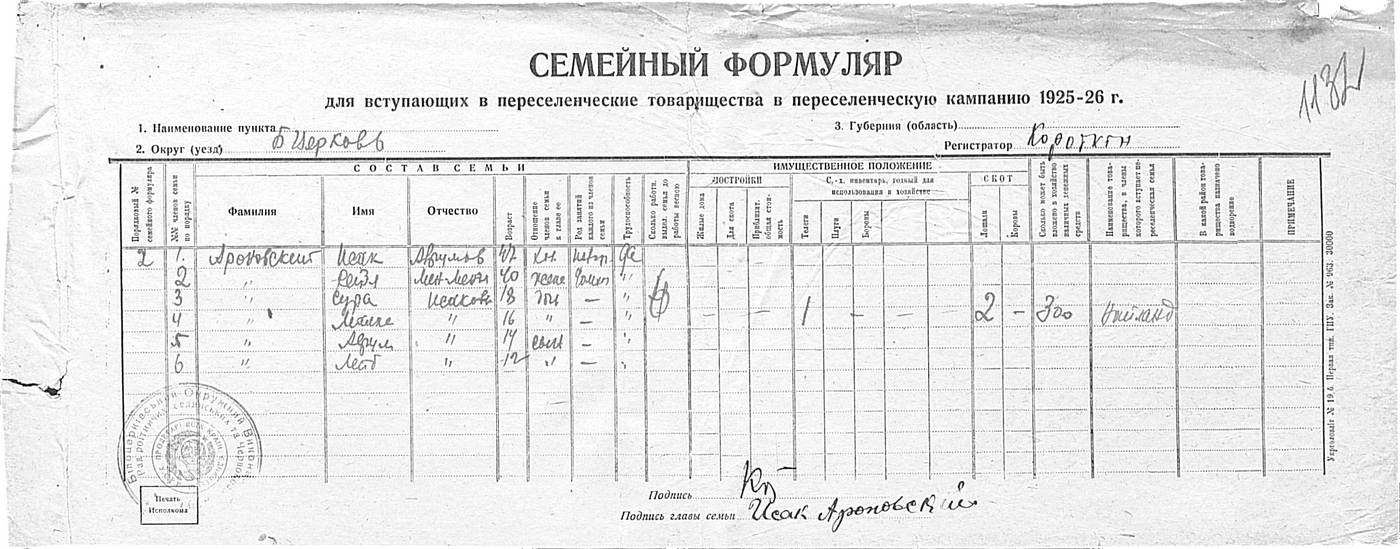 СЕМЕЙНЫЙ ФОРМУЛЯР
1132
для вступающих в переселенческие товарищества в переселенческую кампанию 1925-26 г.
1. Наименование пункта
3. Губерния (область)
2. Округ (уезд) Б Церковь
Регистратор Короткин
СОСТАВ СЕМЬИ
ИМУЩЕСТВЕННОЕ ПОЛОЖЕНИЕ
Порядковый № семейного формуляра
№№ членов семьи по порядку
Фамилия
Имя
Отчество
Возраст
Отношение членов семьи к главе ее
Род занятий каждого из членов семьи
Трудоспособность
Сколько работн. выдел. семья до работы весною
ПОСТРОЙКИ
Жилые дома
Для скота
Приблизит. общая стоимость
С.-х. инвентарь, годный для использования в хозяйстве
Телеги
Плуги
Бороны
СКОТ
Лошади
Коровы
Сколько может быть вложено в хозяйство наличных денежных средств
Наименование товарищества, в члены которого вступает переселенческая семья
В какой район товарищества назначено водворение
ПРИМЕЧАНИЕ
2 1. Ароновский Исак Аврумов 47
2 " Рейзл 40 жена "
3 " Сура Исакова 18 дочь — " — — — 1 — — 2 — 300
4 " " 16 " — "
5 " Аврум " 14 сын — "
6 " Лейб " 12 " — "
Білоцерківський Окружний
Печать
Исполкома
Подпись
Подпись главы семьи Исак Ароновский
Укрголовліт № 19,6. Первая тип. ГПУ. Зак. № 963. 30000